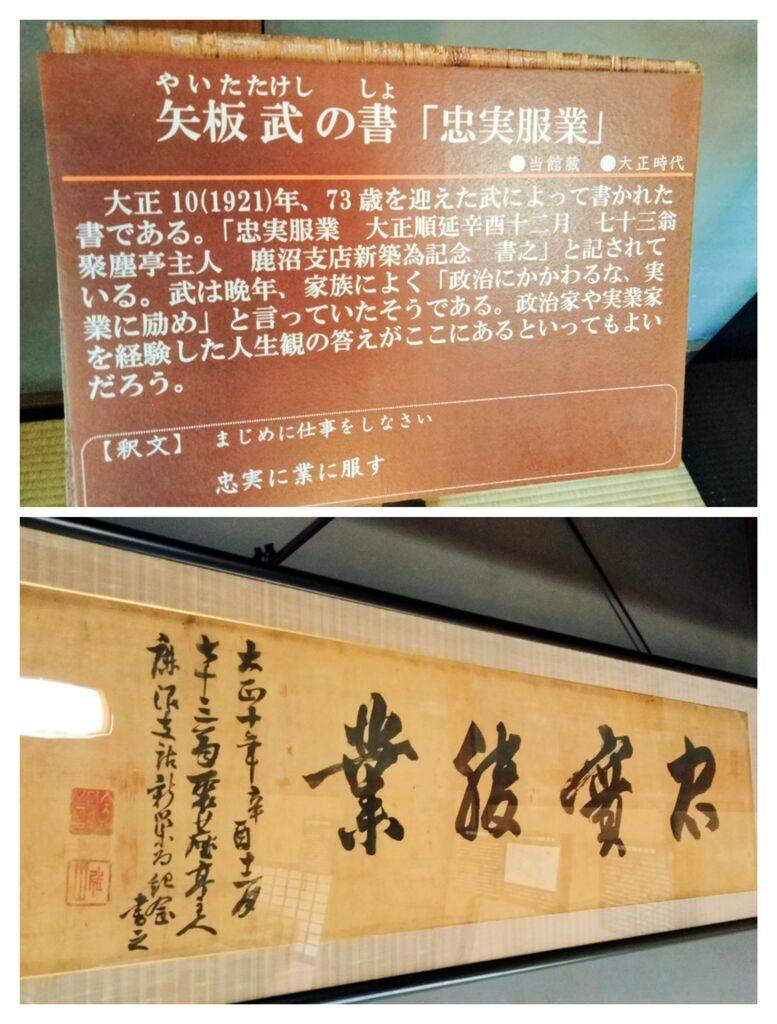 やいたたけし しょ
矢板 武 の書「忠実服業」
●当館蔵 ●大正時代
大正10(1921)年、73歳を迎えた武によって書かれた
書である。「忠実服業　大正順延辛酉十二月　七十三翁
聚塵亭主人　鹿沼支店新築為記念　書之」と記されて
いる。武は晩年、家族によく「政治にかかわるな、実
業に励め」と言っていたそうである。政治家や実業家
を経験した人生観の答えがここにあるといってもよい
だろう。
【釈文】 まじめに仕事をしなさい
忠実に業に服す
忠實服業
大正十年辛酉十二月
七十三翁聚塵亭主人
鹿沼支店新築為紀念
書之